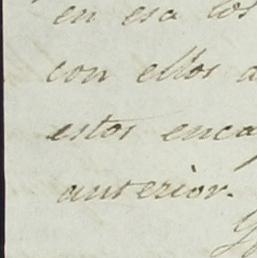 en esa los
con ellos
estos enca
anterior.